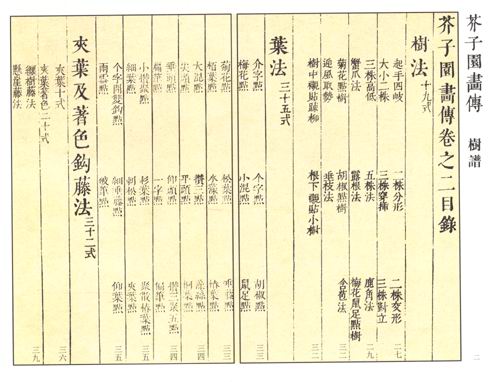 芥子園畫傳 樹譜
芥子園畫傳卷之二目錄
樹法 十九式
起手四岐 二株分形 二株交形 二七
大小二株 三株穿插 三株對立
三株高低 五株法 鹿角法 二九
蟹爪法 露根法 梅花鼠足點樹
菊花點樹 胡椒點樹 含苞法
迎風取勢 垂枝法
樹中襯貼疎柳 根下襯貼小樹
葉法 三十五式
介字點 个字點 胡椒點 三三
梅花點 小混點 鼠足點 三三
菊花點 松葉點 垂藤點
柏葉點 水藻點 椿葉點
大混點 攢三點
尖頭點 平頭點
垂頭點 仰頭點 攢三聚五點 三四
扁筆點 一字點 偏筆點 三四
小攢聚點 杉葉點 聚散椿葉點 三五
細葉點 刺松點 夾葉點
个字間雙鈎點 細垂藤點 仰葉點 三五
雨雲點 破筆點
夾葉及著色鈎藤法 三十二式
夾葉十式 三六
夾葉著色二十式
纏樹藤法
懸崖藤法 三九